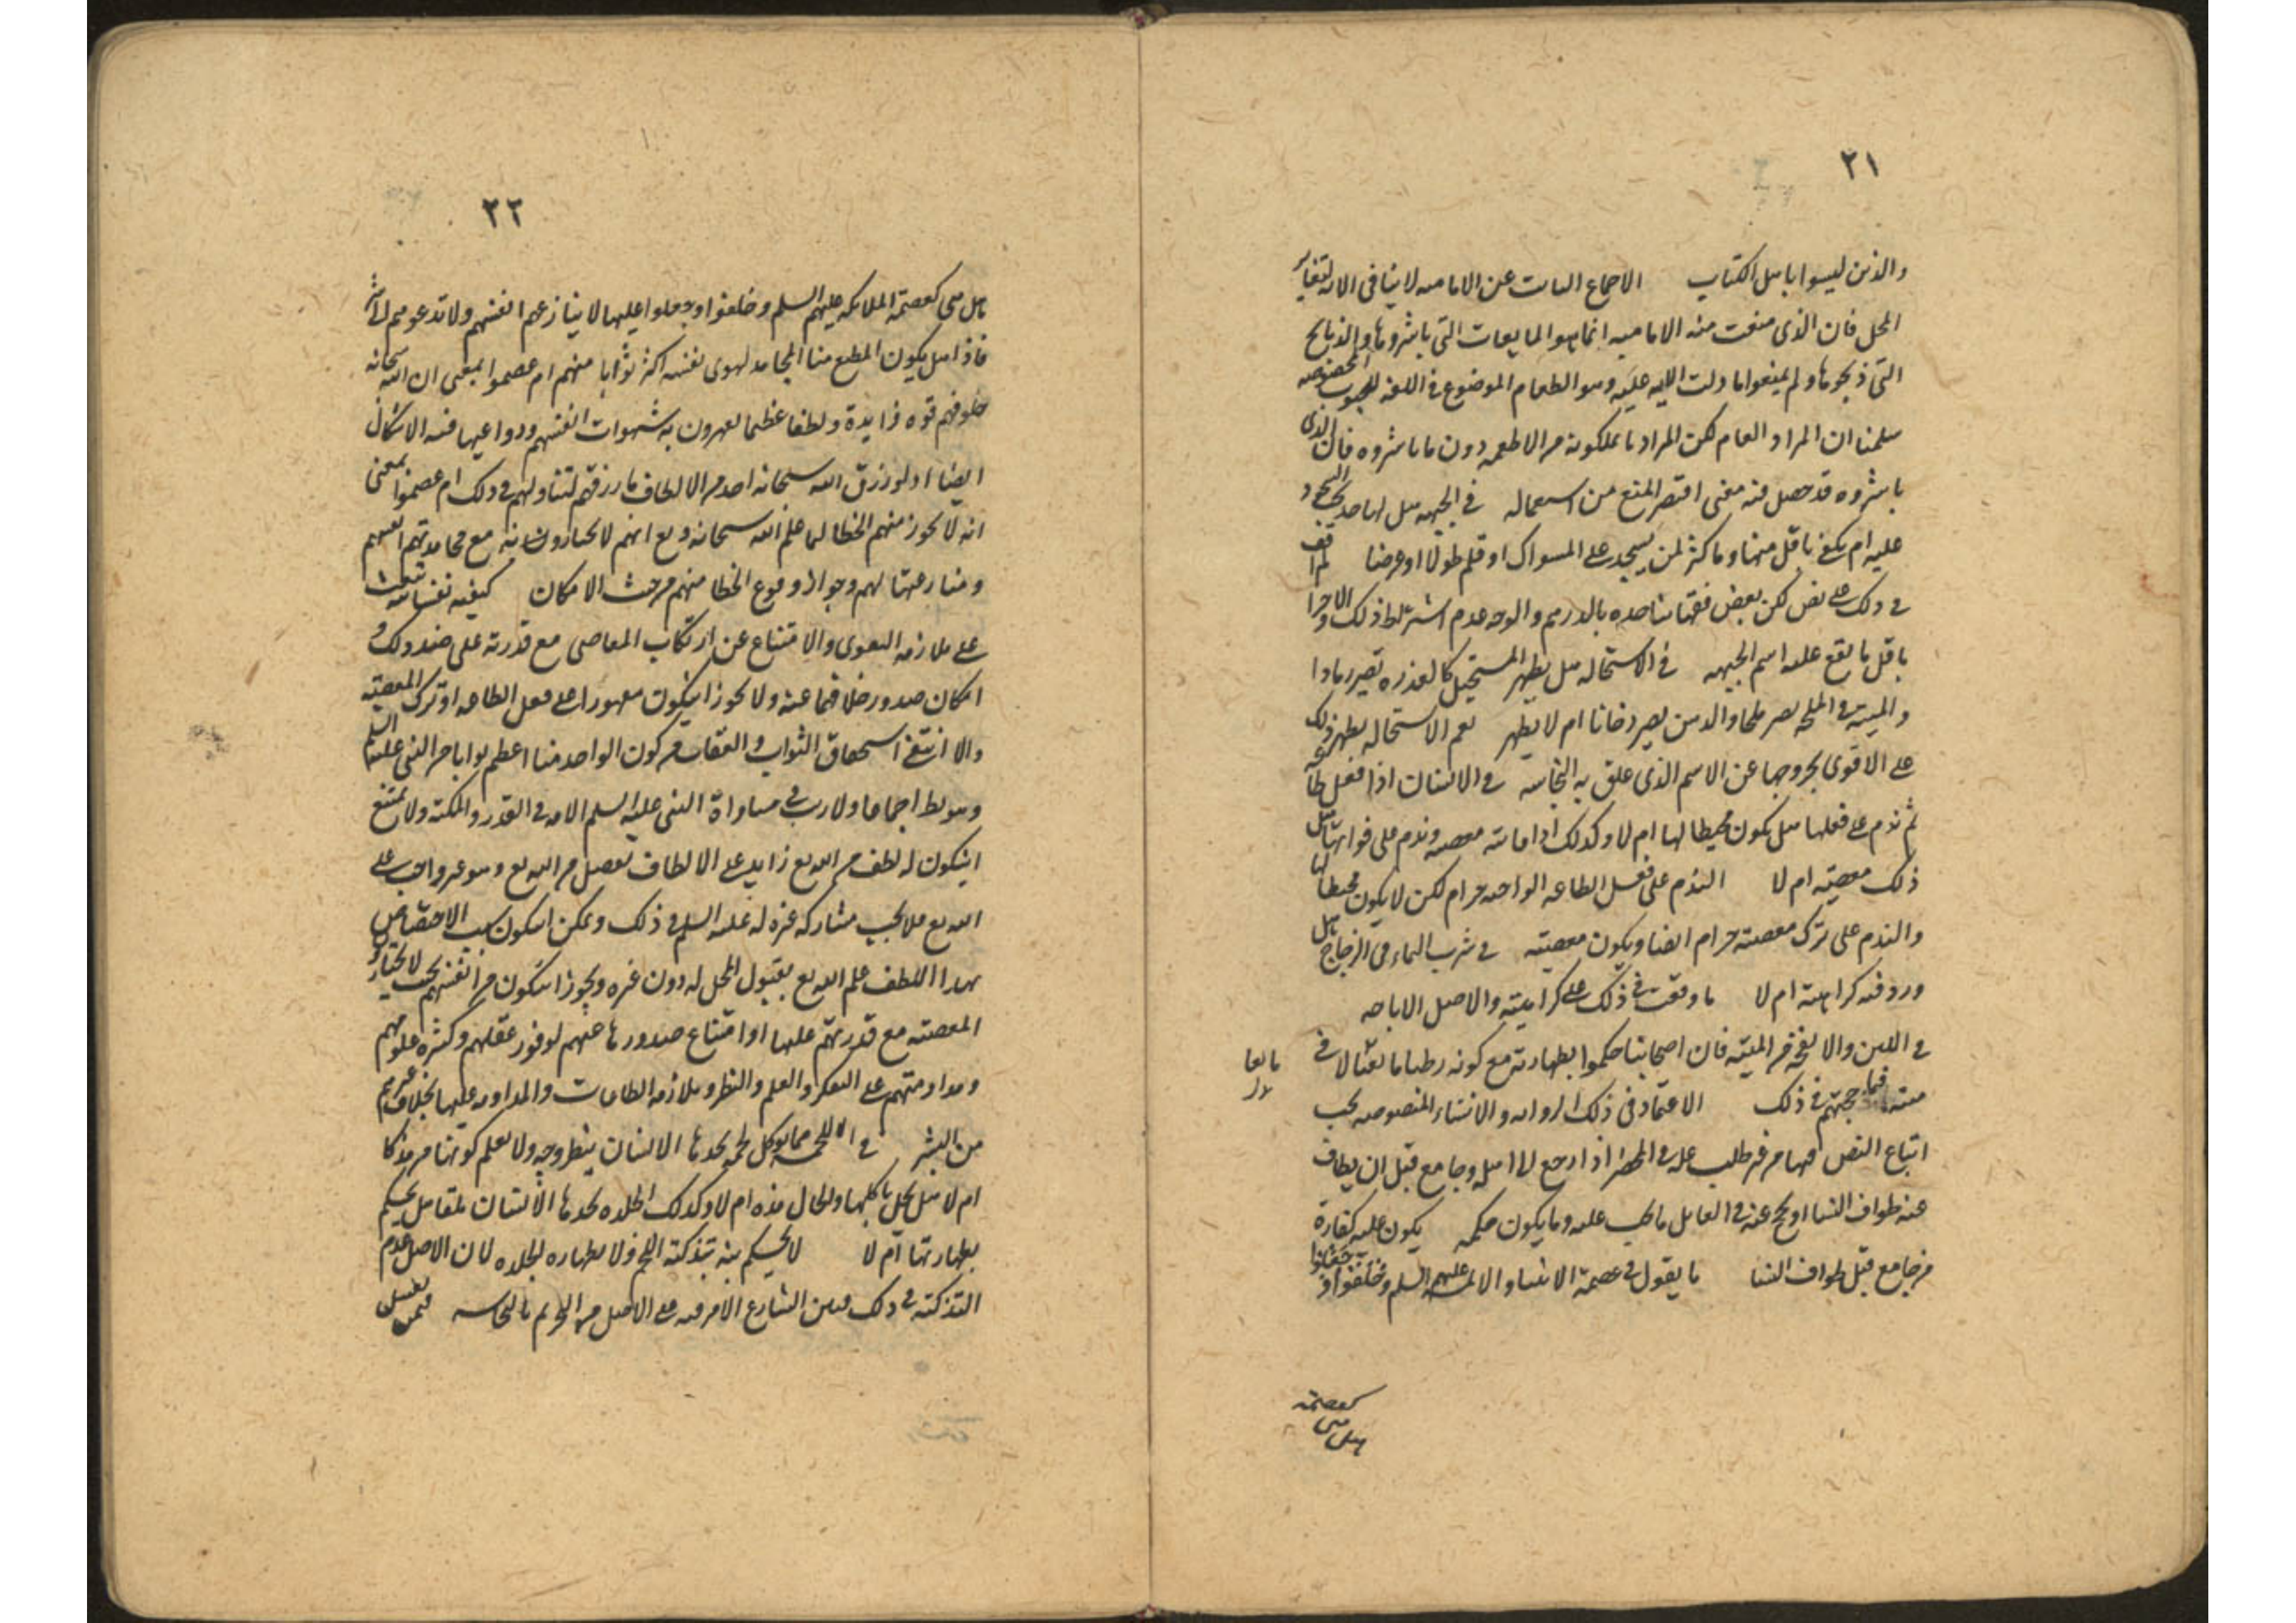 ٢١
والذين ليسوا باهل الكتاب الاجماع الثابت عن الاماميه لا ينافى الايه لتغاير
المحل فان الذى منعت منه الاماميه انما هو المايعات التى باشروها والذبايح
التى ذبحوها ولم يمنعوا ما دلت الايه عليه وهو الطعام الموضوع فى اللغه للحبوب المخصوصه
سلمنا ان المراد العام لكن المراد ما يملكونه من الاطعمه دون ما باشروه فان الذى
باشروه قد حصل فيه معنى اقتضى المنع من استعماله فى الجبهه هل لها حد يجب السجود
عليه ام يكفى باقل منها وما كثر لمن يسجد على المسواك او قلم طولا او عرضا لم اقف
فى ذلك على نص لكن بعض فقهائنا حده بالدرهم والوجه عدم اشتراط ذلك والاجزا
باقل ما يقع عليه اسم الجبهه فى الاستحاله هل يطهر المستحيل كالعذره تصير رمادا
والميته فى الملحه تصير ملحا والدهن يصير دخانا ام لا يطهر نعم الاستحاله يطهر ذلك
على الاقوى لخروجها عن الاسم الذى علق به النجاسه فى الانسان اذا فعل طاعه
ثم ندم على فعلها هل يكون محبطا لها ام لا وكذلك اذا فاته معصيه وندم على فواتها هل
ذلك معصيه ام لا الندم على فعل الطاعه الواحده حرام لكن لا يكون محبطا لها
والندم على ترك معصيته حرام ايضا ويكون معصيته فى شرب الماء فى الزجاج هل
ورد فيه كراهية ام لا ما وقفت فى ذلك على كراهيته والاصل الاباحه
فى اللبن والانفحه من الميته فان اصحابنا حكموا بطهارته مع كونه رطبا مائعا لاقى
مايعا
ميته فما حجتهم فى ذلك الاعتماد فى ذلك الروايه والاشياء المنصوصه يجب
اتباع النص فيها من غير طلب عله فى المحصر اذا رجع الى اهله وجامع قبل ان يطاف
عنه طواف النسا او يحج عنه فى القابل ما يجب عليه وما يكون حكمه يكون عليه كفارة
من جامع قبل طواف النسا ما يقول فى عصمة الانبيا والائمه عليهم السلم وخلقوا وجعلوا
هل هى كعصمة
٢٢
هل هى كعصمة الملائكه عليهم السلم وخلقوا وجعلوا عليها لا ينازعهم انفسهم ولا تدعوهم الى شر
فاذا هل يكون المطيع منا المجاهد لهوى نفسه اكثر ثوابا منهم ام عصموا بمعنى ان الله سبحانه
خلق فيهم قوه زايدة ولطفا عظيما يقهرون به شهوات انفسهم ودواعيها ففيه الاشكال
ايضا اذ لو رزق الله سبحانه احد من الالطاف ما رزقهم لتساويهم فى ذلك ام عصموا بمعنى
انه لا يجوز منهم الخطا لما علم الله سبحانه وتع انهم لا يختارون شانه مع مجاهدتهم انفسهم
ومنازعتها لهم وجواز وقوع الخطا منهم من حيث الامكان كيفيه نفسانيه تبعث
على ملازمه التقوى والامتناع عن ارتكاب المعاصى مع قدرته على ضد ذلك و
امكان صدور خلافهما عنه ولا يجوز ان يكون مقهورا على فعل الطاعه او ترك المعصيه
والا انتفى استحقاق الثواب والعقاب فيكون الواحد منا اعظم ثوابا من النبى عليه السلم
وهو بط اجماعا ولا ريب فى مساواة النبى عليه السلم الامه فى القدره والمكنه ولا يمتنع
ان يكون له لطف من الله تع زايد على الالطاف تفضل من الله تع وهو غير واجب على
الله تع فلا يجب مشاركه غيره له عليه السلم فى ذلك ويمكن ان يكون سبب الاختصاص
بهذا اللطف علم الله تع بقبول المحل له دون غيره ويجوز ان يكون من انفسهم بحيث لا يختارو
المعصيه مع قدرتهم عليها او امتناع صدورها عنهم لوفور عقلهم وكثره علومهم
ومداومتهم على التفكر والعلم والنظر وملازمه الطاعات والمداومه عليها بخلاف غيرهم
من البشر فى اللحم مما يوكل لحمه يجدها الانسان ينظر وجه ولا يعلم كونها من مذكا
ام لا هل يحل ياكلها والحال هذه ام لا وكذلك الجلده يجدها الانسان ملقا هل يحكم
بطهارتها ام لا لا يحكم بتذكية اللحم ولا بطهاره الجلده لان الاصل عدم
التذكية فى ذلك فبين الشارع الامر فيه على الاصل من التحريم بالنجاسه فيمن يغسل